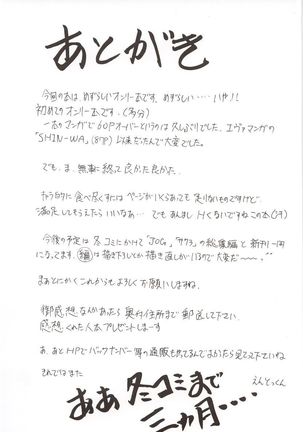 あとがき
今回の本は、めずらしいオンリー本です。めずらしい・・・・いや!!
初めてのオンリー本です。(多分)
一本のマンガで60Pオーバーというのは久しぶりでした。エヴァマンガの
「SHIN-WA」(87P)以来だったんで大変でした。
でも、ま、無事に終って良かた良かた。
キャラ的に食べ尽くすにはページがいくらあっても足りないものですけど
満足してもらえたらいいなぁ… でもあんましHくないですねこの本(汗)
今後の予定は冬コミにかけて「JOG」「サクラ」の総集編と新刊一冊
になってます。編は描き下しとか描き直しがいるので大変だ〜〜。
まぁとにかくこれからもよろしくお願いしますね。
御感想なんかあったら奥付住所まで郵送して下さい。
感想くれた人本プレゼントしまーす
あ、あとHPでバックナンバー等の通販も出てるんでよかったら見て下さいね
それではまた
えんどっくん
ああ冬コミまで
三ヵ月・・・・